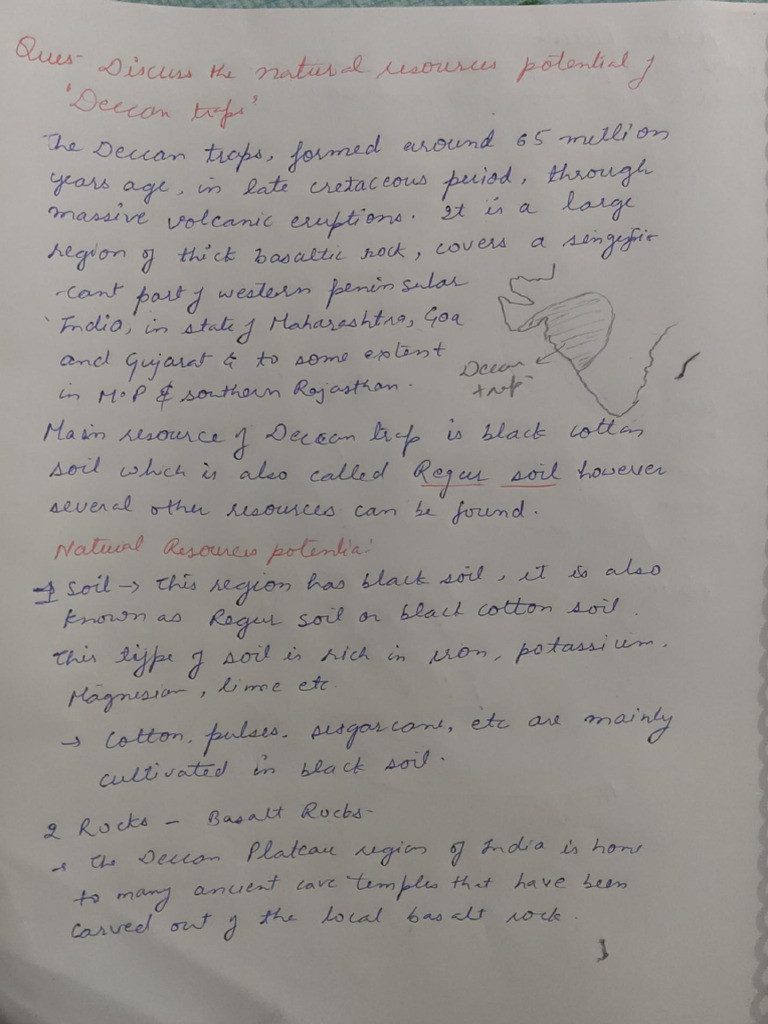 Ques- Discuss the natural resources potential of
'Deccan traps'
The Deccan traps, formed around 65 million
years age, in late cretaceous period, through
massive volcanic eruptions. It is a large
region of thick basaltic rock, covers a singefi
-cant part of western peninsular
India, in state of Maharashtra, Goa
and Gujarat & to some extent
in M.P & southern Rajasthan.
Deccan
trap
Main resource of Deccan trap is black cotton
soil which is also called Regur soil however
several other resources can be found.
Natural Resources potential
1 Soil → This region has black soil, it is also
known as Regur soil or black cotton soil.
This type of soil is rich in iron, potassium,
Magnesium, lime etc
→ Cotton, pulses, sugarcane, etc are mainly
cultivated in black soil.
2 Rocks - Basalt Rocks-
→ The Deccan Plateau region of India is home
to many ancient cave temples that have been
carved out of the local basalt rock.